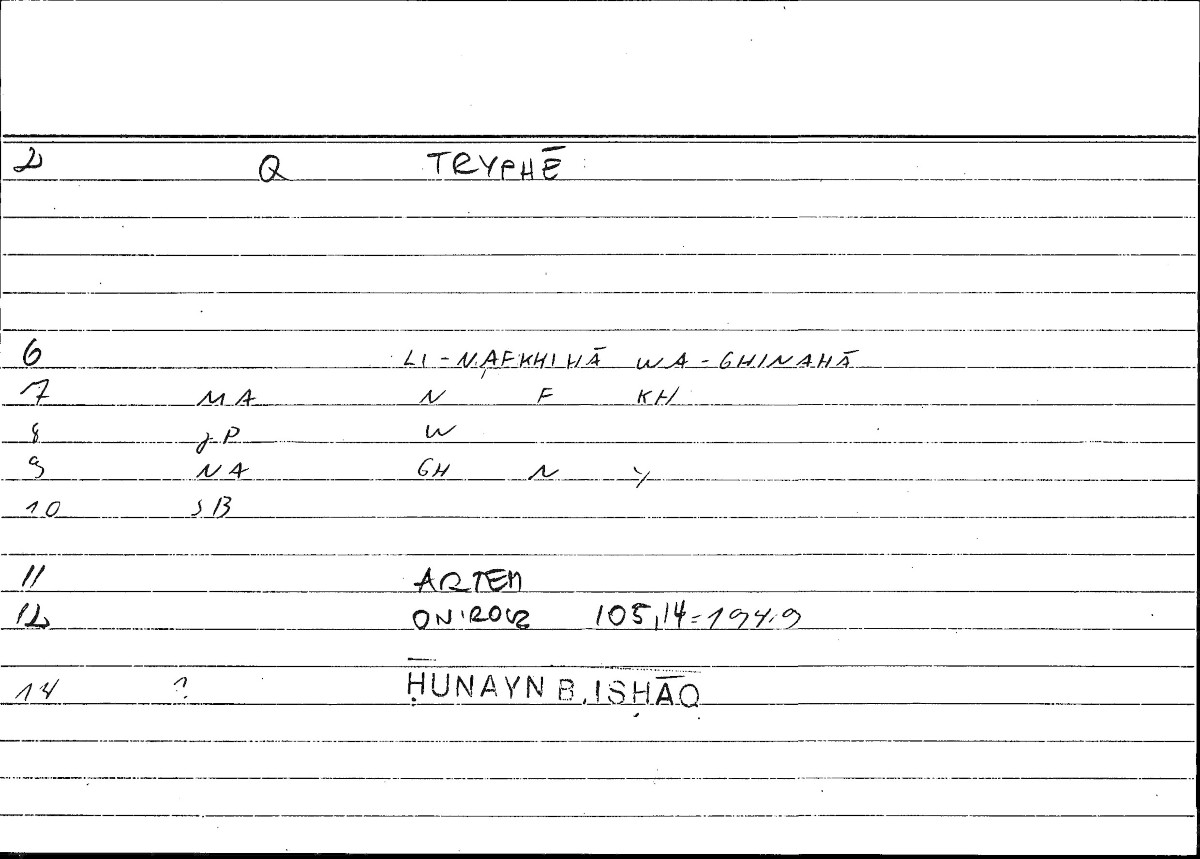 2 Q TRYPHĒ
6 LI-NAFKHIHĀ WA-GHINAHĀ
7 MA N F KH
8 JP W
9 NA GH N Y
10 SB
11 ARTEM
12 ONIROCR 105,14=194.9
14 ? ḤUNAYN B. ISḤĀQ